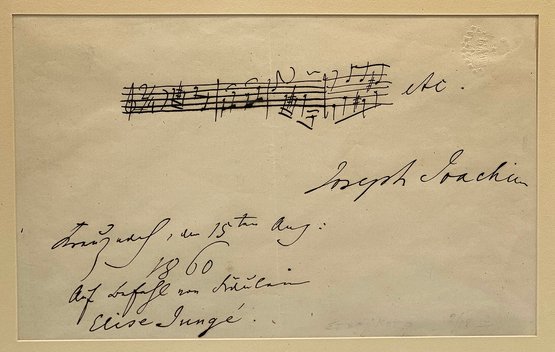 etc.
Joseph Joachim
Kreuznach, den 15ten Aug:
1860
Auf Befehl von Fräulein
Elise Jungé.